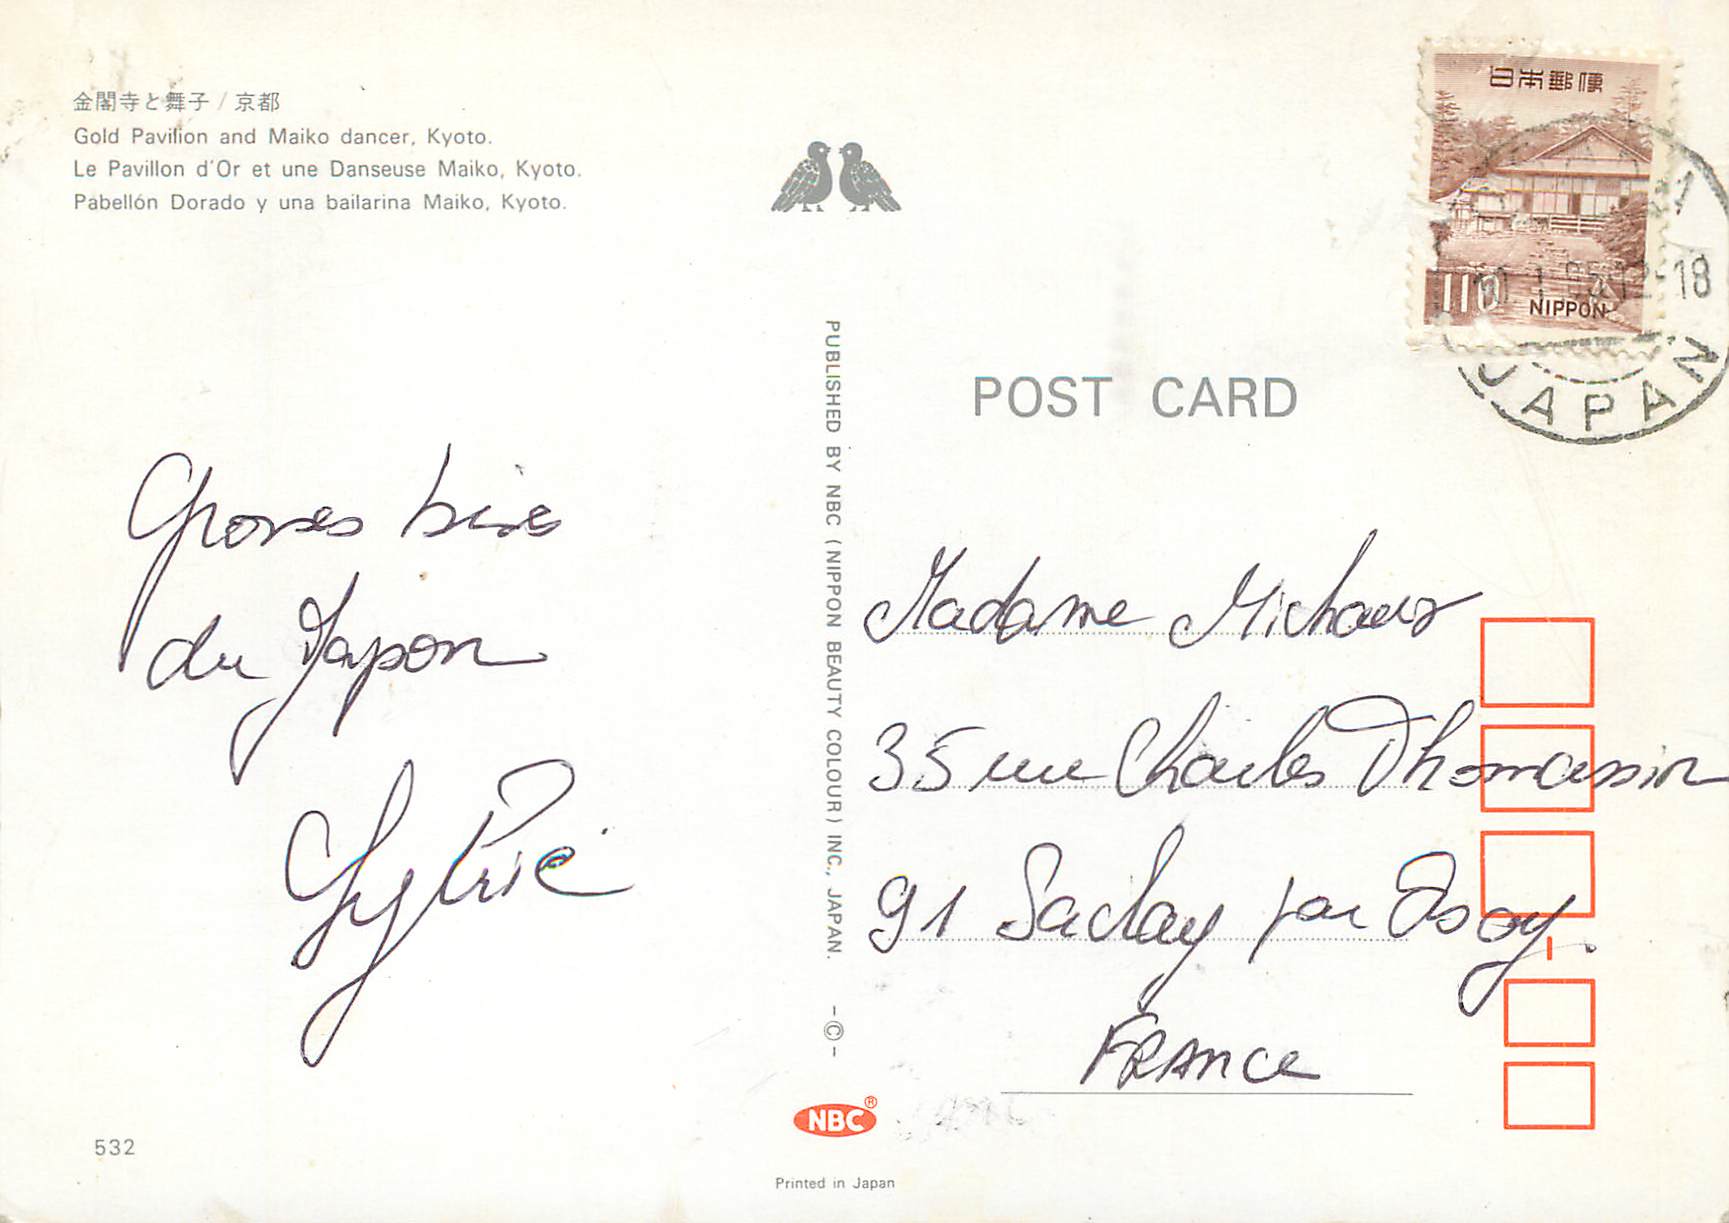 金閣寺と舞子 / 京都
Gold Pavilion and Maiko dancer, Kyoto.
Le Pavillon d'Or et une Danseuse Maiko, Kyoto.
Pabellón Dorado y una bailarina Maiko, Kyoto.
日本郵便
110
NIPPON
12-18
JAPAN
POST CARD
PUBLISHED BY NBC (NIPPON BEAUTY COLOUR) INC., JAPAN. -©-
Grosses bises
du Japon
Sylvie
Madame Michaux
35 rue Charles Thomassin
91 Saclay par Orsay.
FRANCE
NBC®
532
Printed in Japan